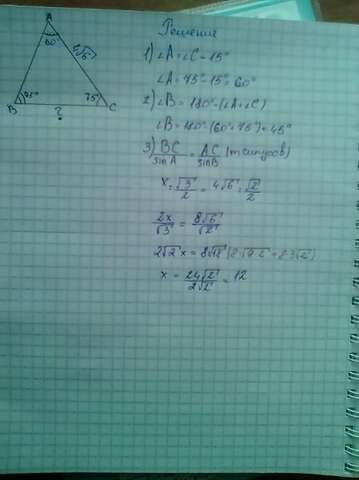 Решение
A
60°
4√6
B
45°
75°
C
?
1) ∠A = ∠C - 15°
∠A = 75° - 15° = 60°
2) ∠B = 180° - (∠A + ∠C)
∠B = 180° - (60° + 75°) = 45°
3) BC/sin A = AC/sin B (т синусов)
x ÷ √3/2 = 4√6 ÷ √2/2
2x/√3 = 8√6/√2
2√2 x = 8√18
x = 24√2/2√2 = 12